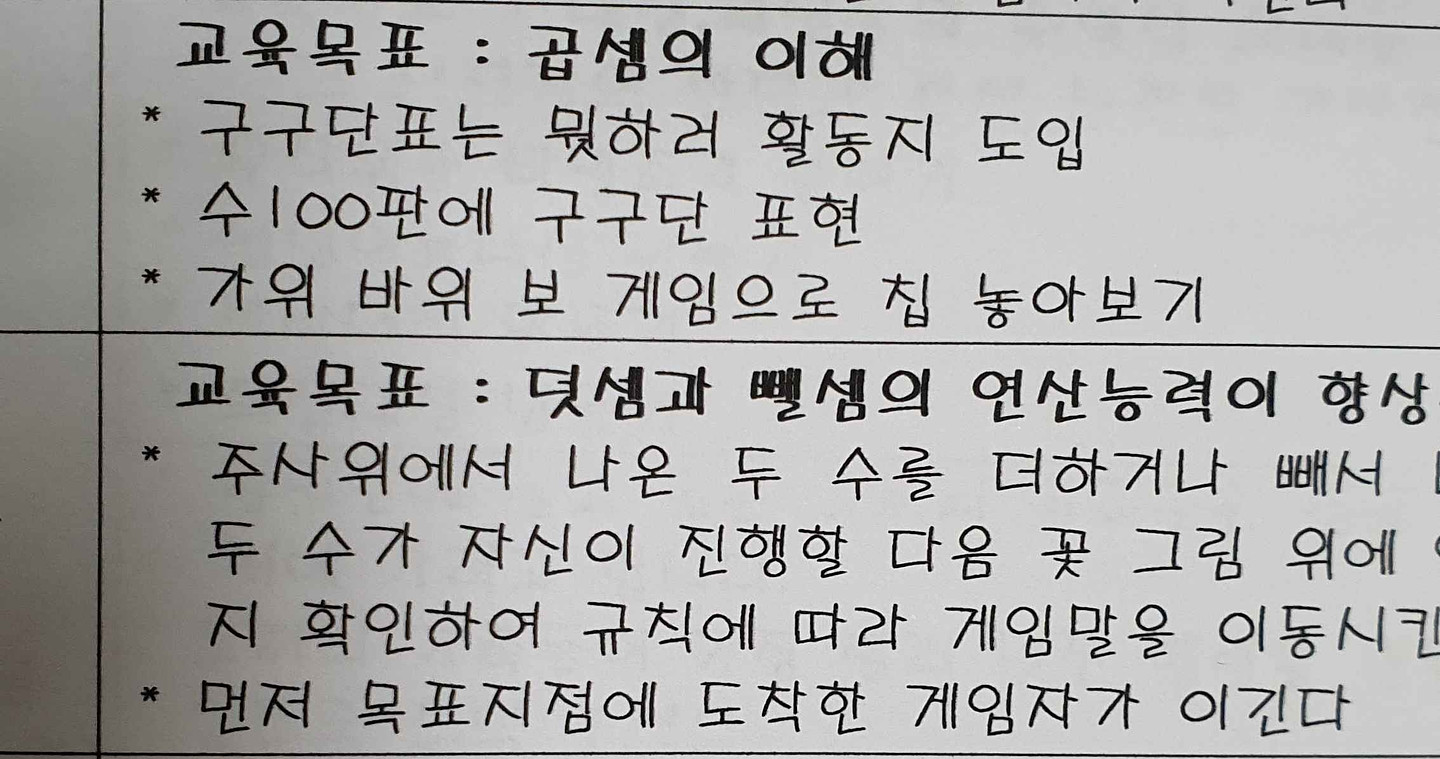 교육목표 : 곱셈의 이해
* 구구단표는 뭣하러 활동지 도입
* 수100판에 구구단 표현
* 가위 바위 보 게임으로 칩 놓아보기
교육목표 : 뎟셈과 뺄셈의 연산능력이 향상
* 주사위에서 나온 두 수를 더하거나 빼서
두 수가 자신이 진행할 다음 꽃 그림 위에
지 확인하여 규칙에 따라 게임말을 이동시킨
* 먼저 목표지점에 도착한 게임자가 이긴다